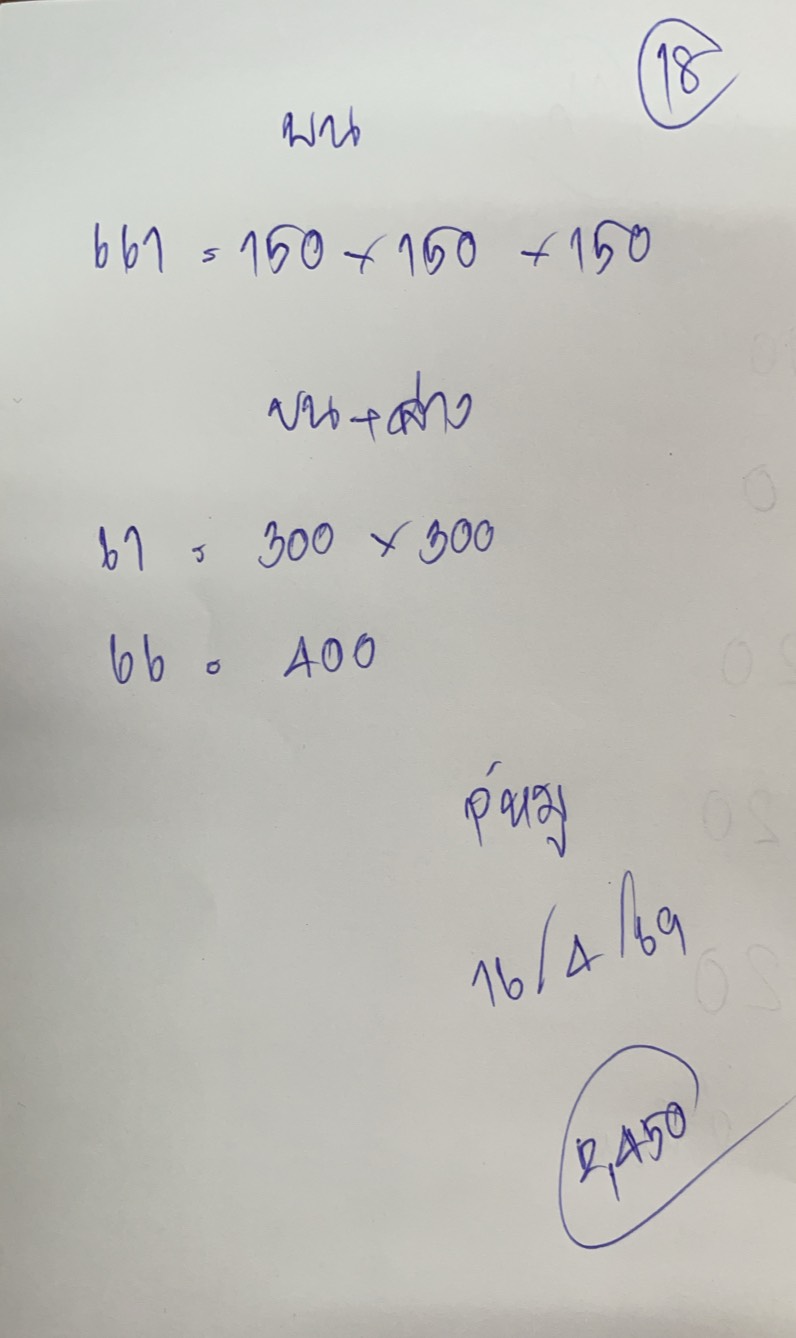 18
บน
661 = 150 × 150 × 150
บน + ล่าง
61 = 300 × 300
66 = 400
16/4/69
2,450